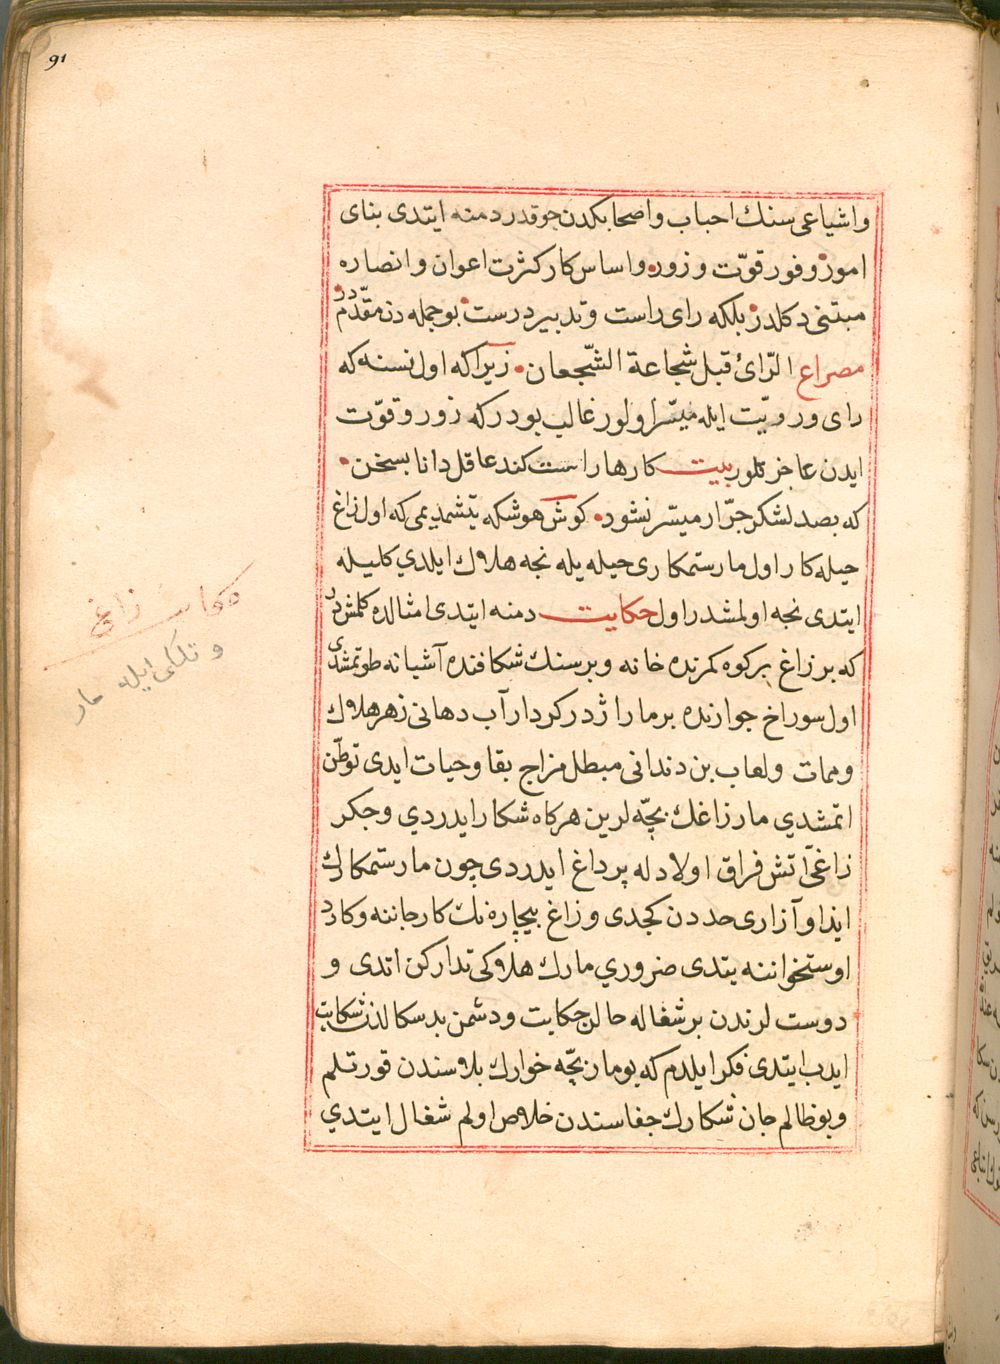 91
واشياعى سنك احباب واصحابكدن جوقدر دمنه ايتدى بناى
امور وفور قوّت و زوره واساس كار كثرت اعوان وانصاره
مبتنى دكلدر بلكه راى راست وتدبير درست بوجمله دن مقدّمدر
مصراع الرّائ قبل شجاعة الشّجعان زيرا كه اول نسنه كه
راى ورويّت ايله ميسّر اولور غالب بودر كه زور وقوّت
ايدن عاجز كلور بيت كارها راست كند عاقل دانا بسخن
كه بصد لشكر جرّار ميسّر نشود كوش هوشكه يتشمديمى كه اول زاغ
حيله كار اول مار ستمكارى حيله يله نجه هلاك ايلدي كليله
ايتدى نجه اولمشدر اول حكايت دمنه ايتدى امثالده كلمشدر
كه بر زاغ بر كوه كمرنده خانه وبر سنك شكافنده آشيانه طوتمشدى
اول سوراخ جوارنده بر مار اژدر كردار آب دهانى زهر هلاك
وممات ولعاب بن دندانى مبطل مزاج بقا وحيات ايدى توطّن
اتمشدي مار زاغك بچّه لرين هركاه شكار ايدردي وجكر
زاغى آتش فراق اولادله پرداغ ايدردى چون مار ستمكارك
ايذا وآزارى حددن كچدى وزاغ بيچاره نك كار جاننه وكارد
اوستخواننه يتدى ضروري مارك هلاكى تداركن اتدى و
دوست لرندن بر شغاله حالن حكايت ودشمن بدسكالدن شكايت
ايدب ايتدى فكر ايلدم كه بو مار بچّه خوارك بلاسندن قورتلم
وبو ظالم جان شكارك جفاسندن خلاص اولم شغال ايتدي
زاغ
و تلكى ايله مار